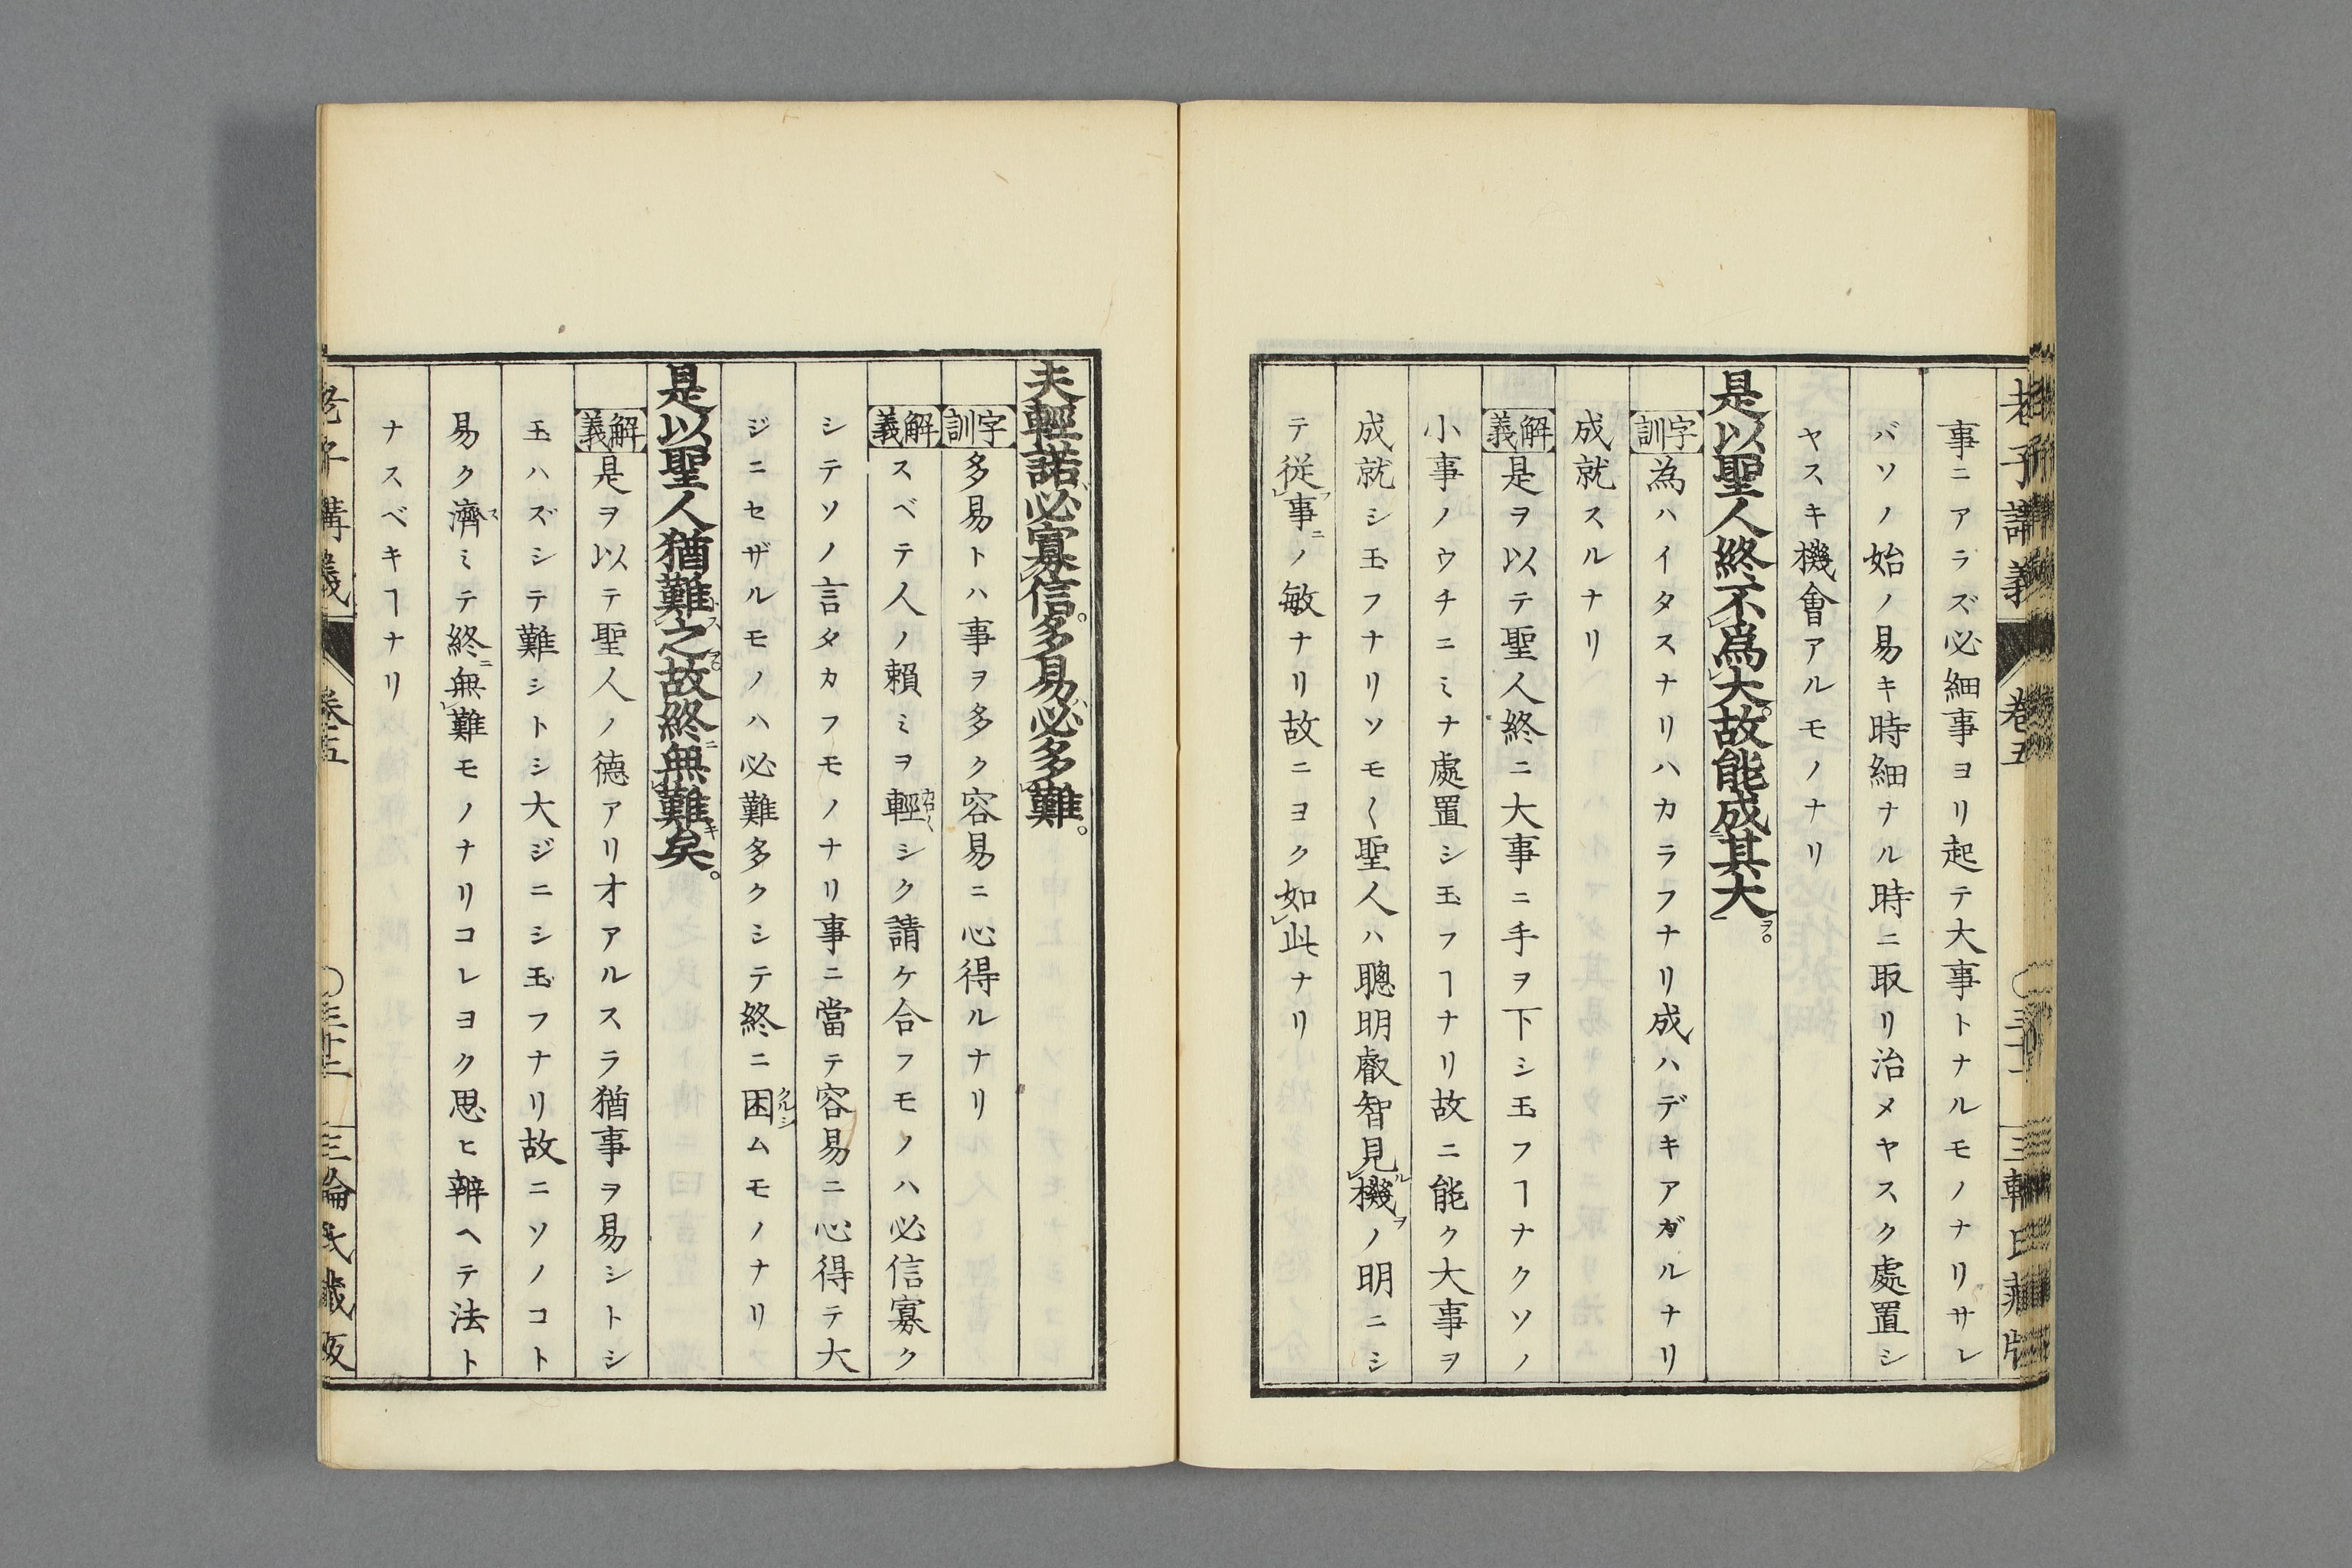 老子講義 巻五 三輪氏藏版
事ニアラズ必細事ヨリ起テ大事トナルモノナリサレ
バソノ始ノ易キ時細ナル時ニ取リ治メヤスク處置シ
ヤスキ機會アルモノナリ
是以聖人終不為大。故能成其大ヲ。
字訓 為ハイタスナリハカラフナリ成ハデキアガルナリ
成就スルナリ
解義 是ヲ以テ聖人終ニ大事ニ手ヲ下シ玉フヿナクソノ
小事ノウチニミナ處置シ玉フヿナリ故ニ能ク大事ヲ
成就シ玉フナリソモ〱聖人ハ聰明叡智見ルレ機ヲノ明ニシ
テ従フレ事ニノ敏ナリ故ニヨク如レ此ナリ
夫輕諾必寡信。多易必多難。
字訓 多易トハ事ヲ多ク容易ニ心得ルナリ
解義 スベテ人ノ頼ミヲ輕カロ〱シク請ケ合フモノハ必信寡ク
シテソノ言タカフモノナリ事ニ當テ容易ニ心得テ大
ジニセザルモノハ必難多クシテ終ニ困クルシムモノナリ
是以聖人猶難之。故終ニ無難キ矣。
解義 是ヲ以テ聖人ノ德アリオアルスラ猶事ヲ易シトシ
玉ハズシテ難シトシ大ジニシ玉フナリ故ニソノコト
易ク濟スミテ終ニ無レ難モノナリコレヨク思ヒ辨ヘテ法ト
ナスベキヿナリ
老子講義 巻五 〇三十二 三輪氏藏版